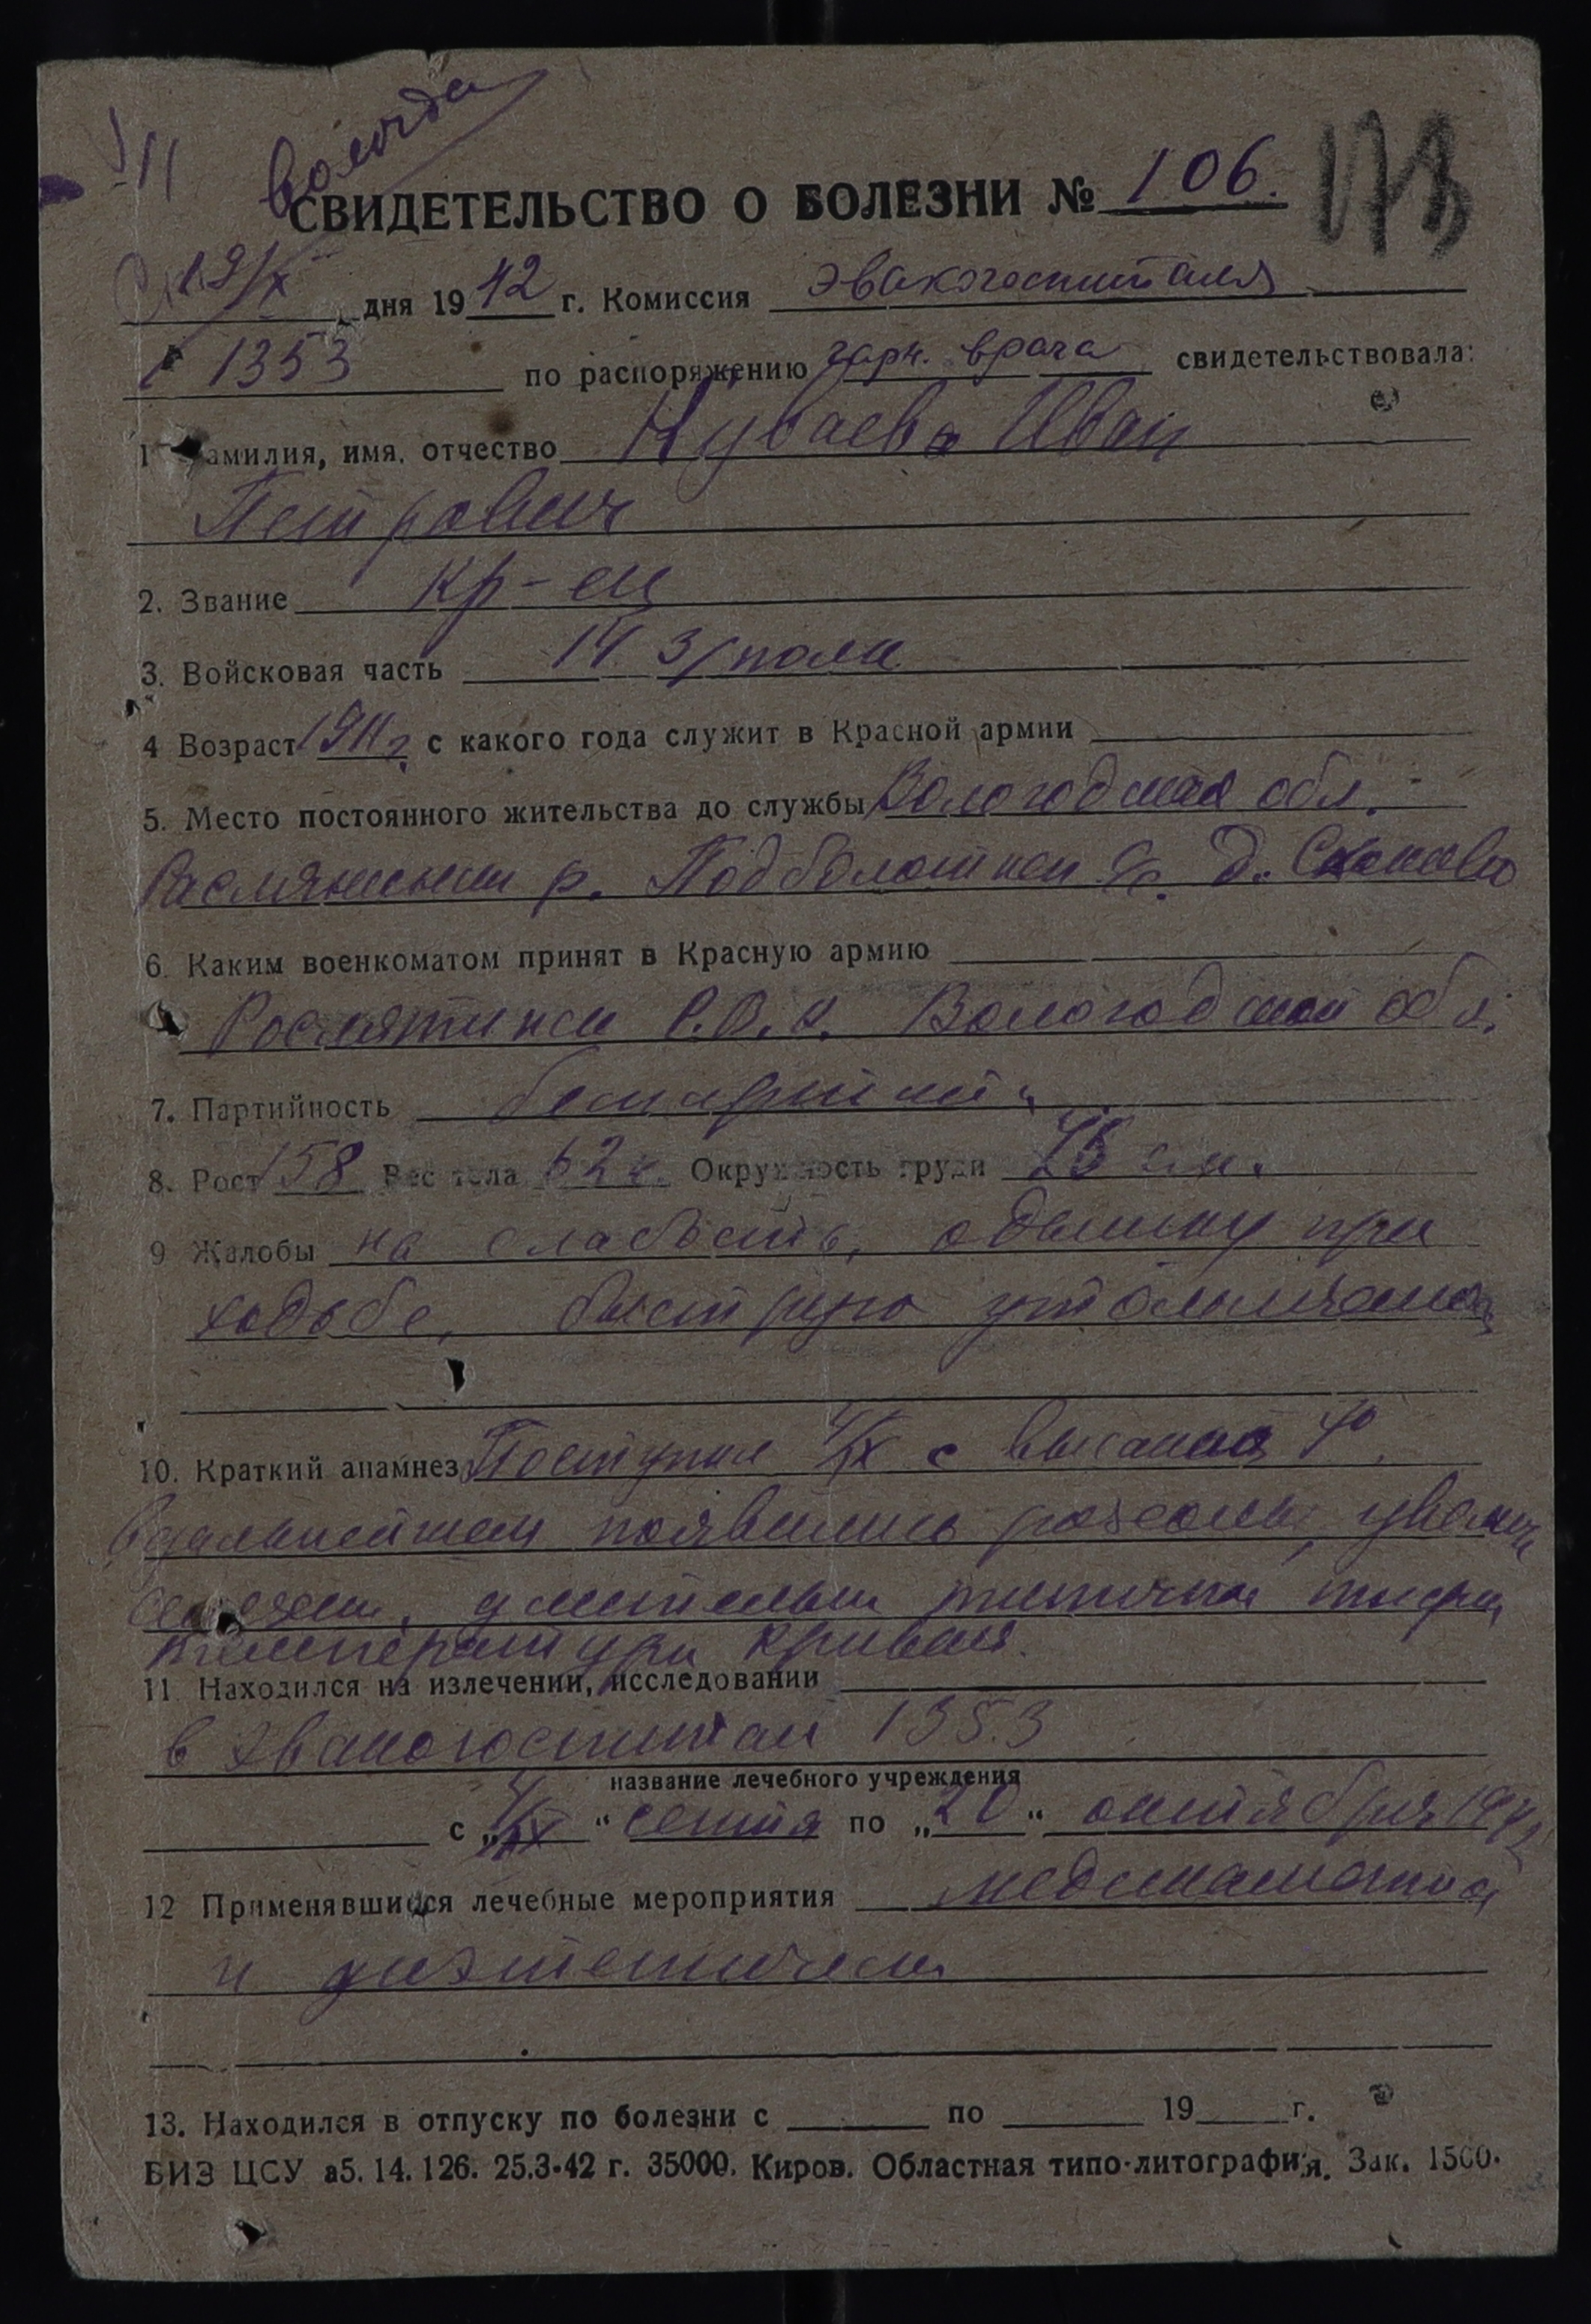 Вологда
VII
СВИДЕТЕЛЬСТВО О БОЛЕЗНИ № 106. 173
19/X дня 1942 г. Комиссия эвакогоспиталя
1353 по распоряжению гарн. врача свидетельствовала:
1 Фамилия, имя, отчество Куваева Иван
Петрович
2. Звание кр-ец
3. Войсковая часть 14 з/полк
4 Возраст 1911 г. с какого года служит в Красной армии
5. Место постоянного жительства до службы Вологодская обл.
р. Подболотный с/с. д.
6. Каким военкоматом принят в Красную армию
Рослятински Р.В.К. Вологодской обл.
7. Партийность беспартийн
8. Рост 158 Вес тела 62 к. Окружность груди см.
9 Жалобы на слабость, одышку при
ходьбе, быструю утомляемость
10. Краткий анамнез Поступил с высокой t°.
В дальнейшем появились розеолы, увелич
селезени, длительн типична тифа
температурн кривая.
11. Находился на излечении, исследовании
в эвакогоспитал 1353
название лечебного учреждения
с „ “ сентя по „20“ октября 1942
12 Применявшиеся лечебные мероприятия медикаментоз
и диэтетическ
13. Находился в отпуску по болезни с по 19 г.
БИЗ ЦСУ а5. 14. 126. 25.3-42 г. 35000. Киров. Областная типо-литография. Зак. 1500.